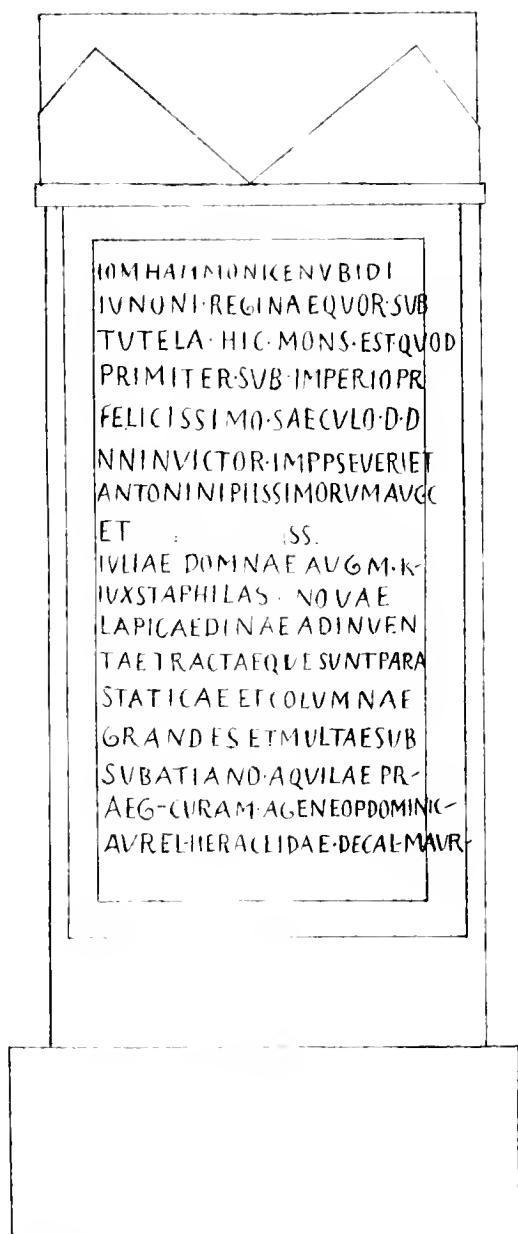 IOMHAMMONICENVBIDI
IVNONI·REGINAEQVOR·SVB
TVTELA·HIC·MONS·EST·QVOD
PRIMITER·SVB·IMPERIOPR
FELICISSIMO·SAECVLO·D·D
NNINVICTOR·IMPPSEVERIET
ANTONINIPIISSIMORVMAVGG
ET SS.
IVLIAE DOMNAE AVG M·K-
IVXSTAPHILAS · NOVAE
LAPICAEDINAEADINVEN
TAETRACTAEQVESUNTPARA
STATICAE ETCOLUMNAE
GRANDES ETMULTAESVB
SVBATIANO·AQVILAE PR-
AEG-CVRAM·AGENEOPDOMINIC-
AVREL·HERACLIDAE·DECAL·MAVR-